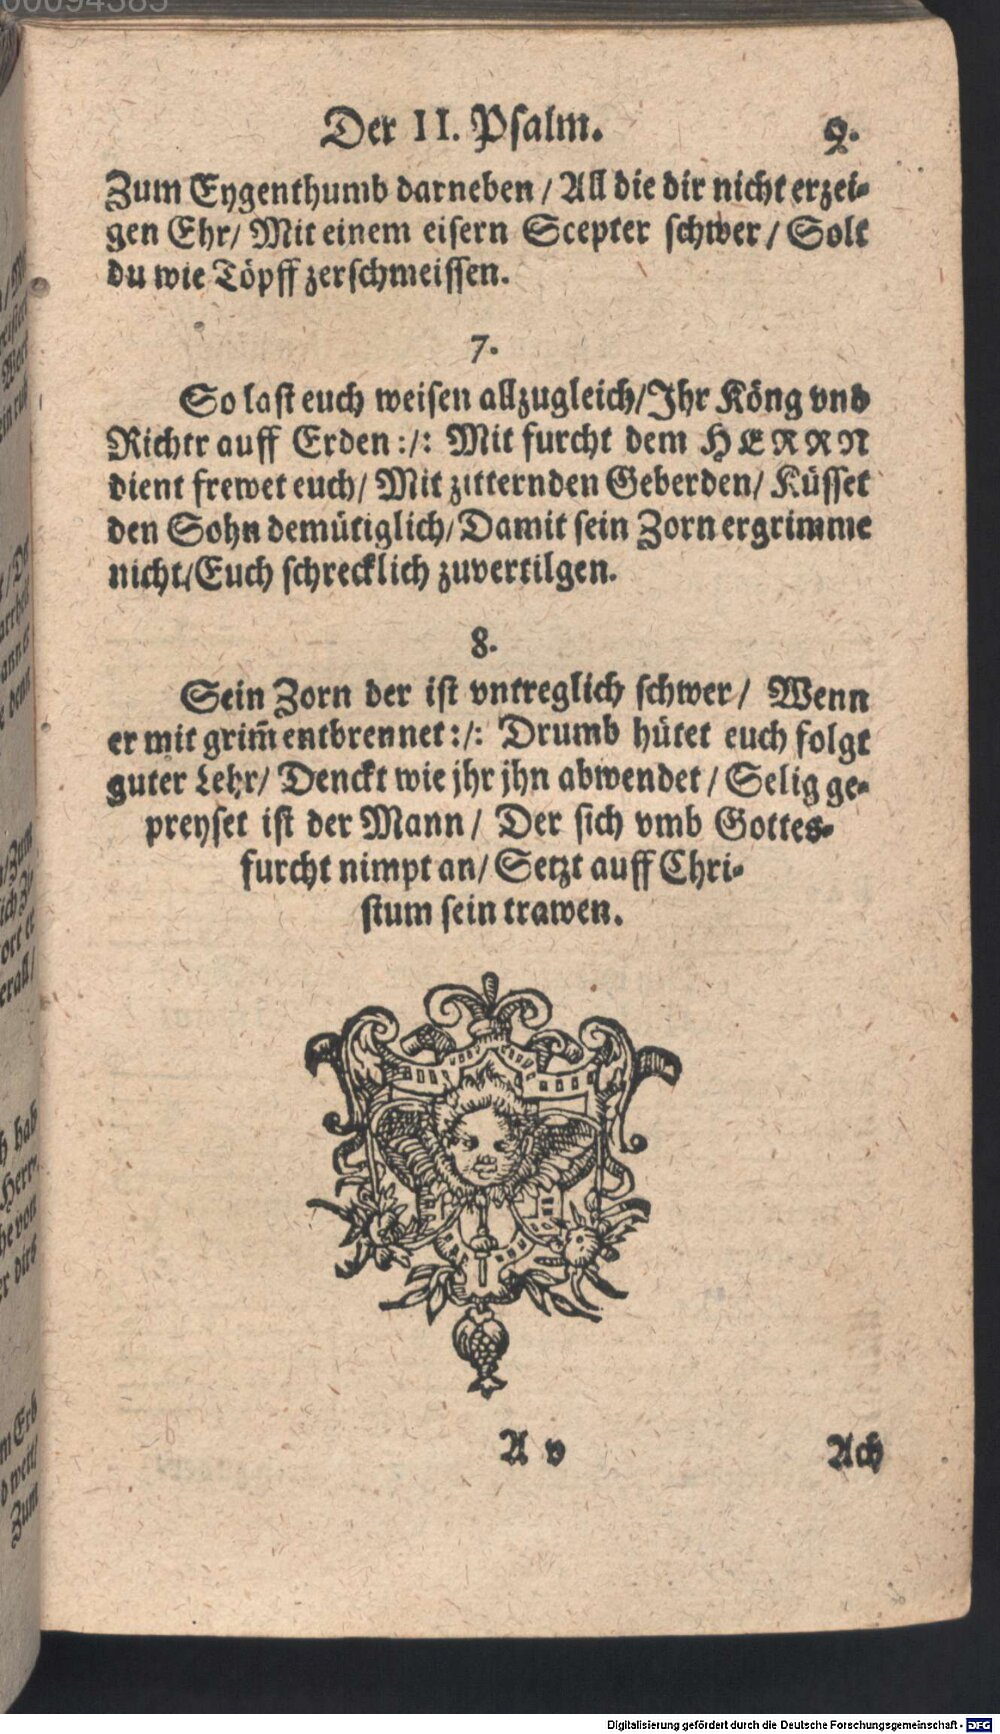 00094385
Der II. Psalm. 9.
Zum Eygenthumb darneben / All die dir nicht erzei-
gen Ehr/ Mit einem eisern Scepter schwer / Solt
du wie Töpff zerschmeissen.
7.
So last euch weisen allzugleich/Ihr Köng vnd
Richtr auff Erden :/: Mit furcht dem HERRN
dient frewet euch/ Mit zitternden Geberden/ Küsset
den Sohn demütiglich/Damit sein Zorn ergrimme
nicht/Euch schrecklich zuvertilgen.
8.
Sein Zorn der ist vntreglich schwer/ Wenn
er mit grim̃ entbrennet :/: Drumb hütet euch folgt
guter Lehr/ Denckt wie jhr jhn abwendet / Selig ge-
preyset ist der Mann/ Der sich vmb Gottes-
furcht nimpt an/ Setzt auff Chri-
stum sein trawen.
A v Ach
Digitalisierung gefördert durch die Deutsche Forschungsgemeinschaft - DFG